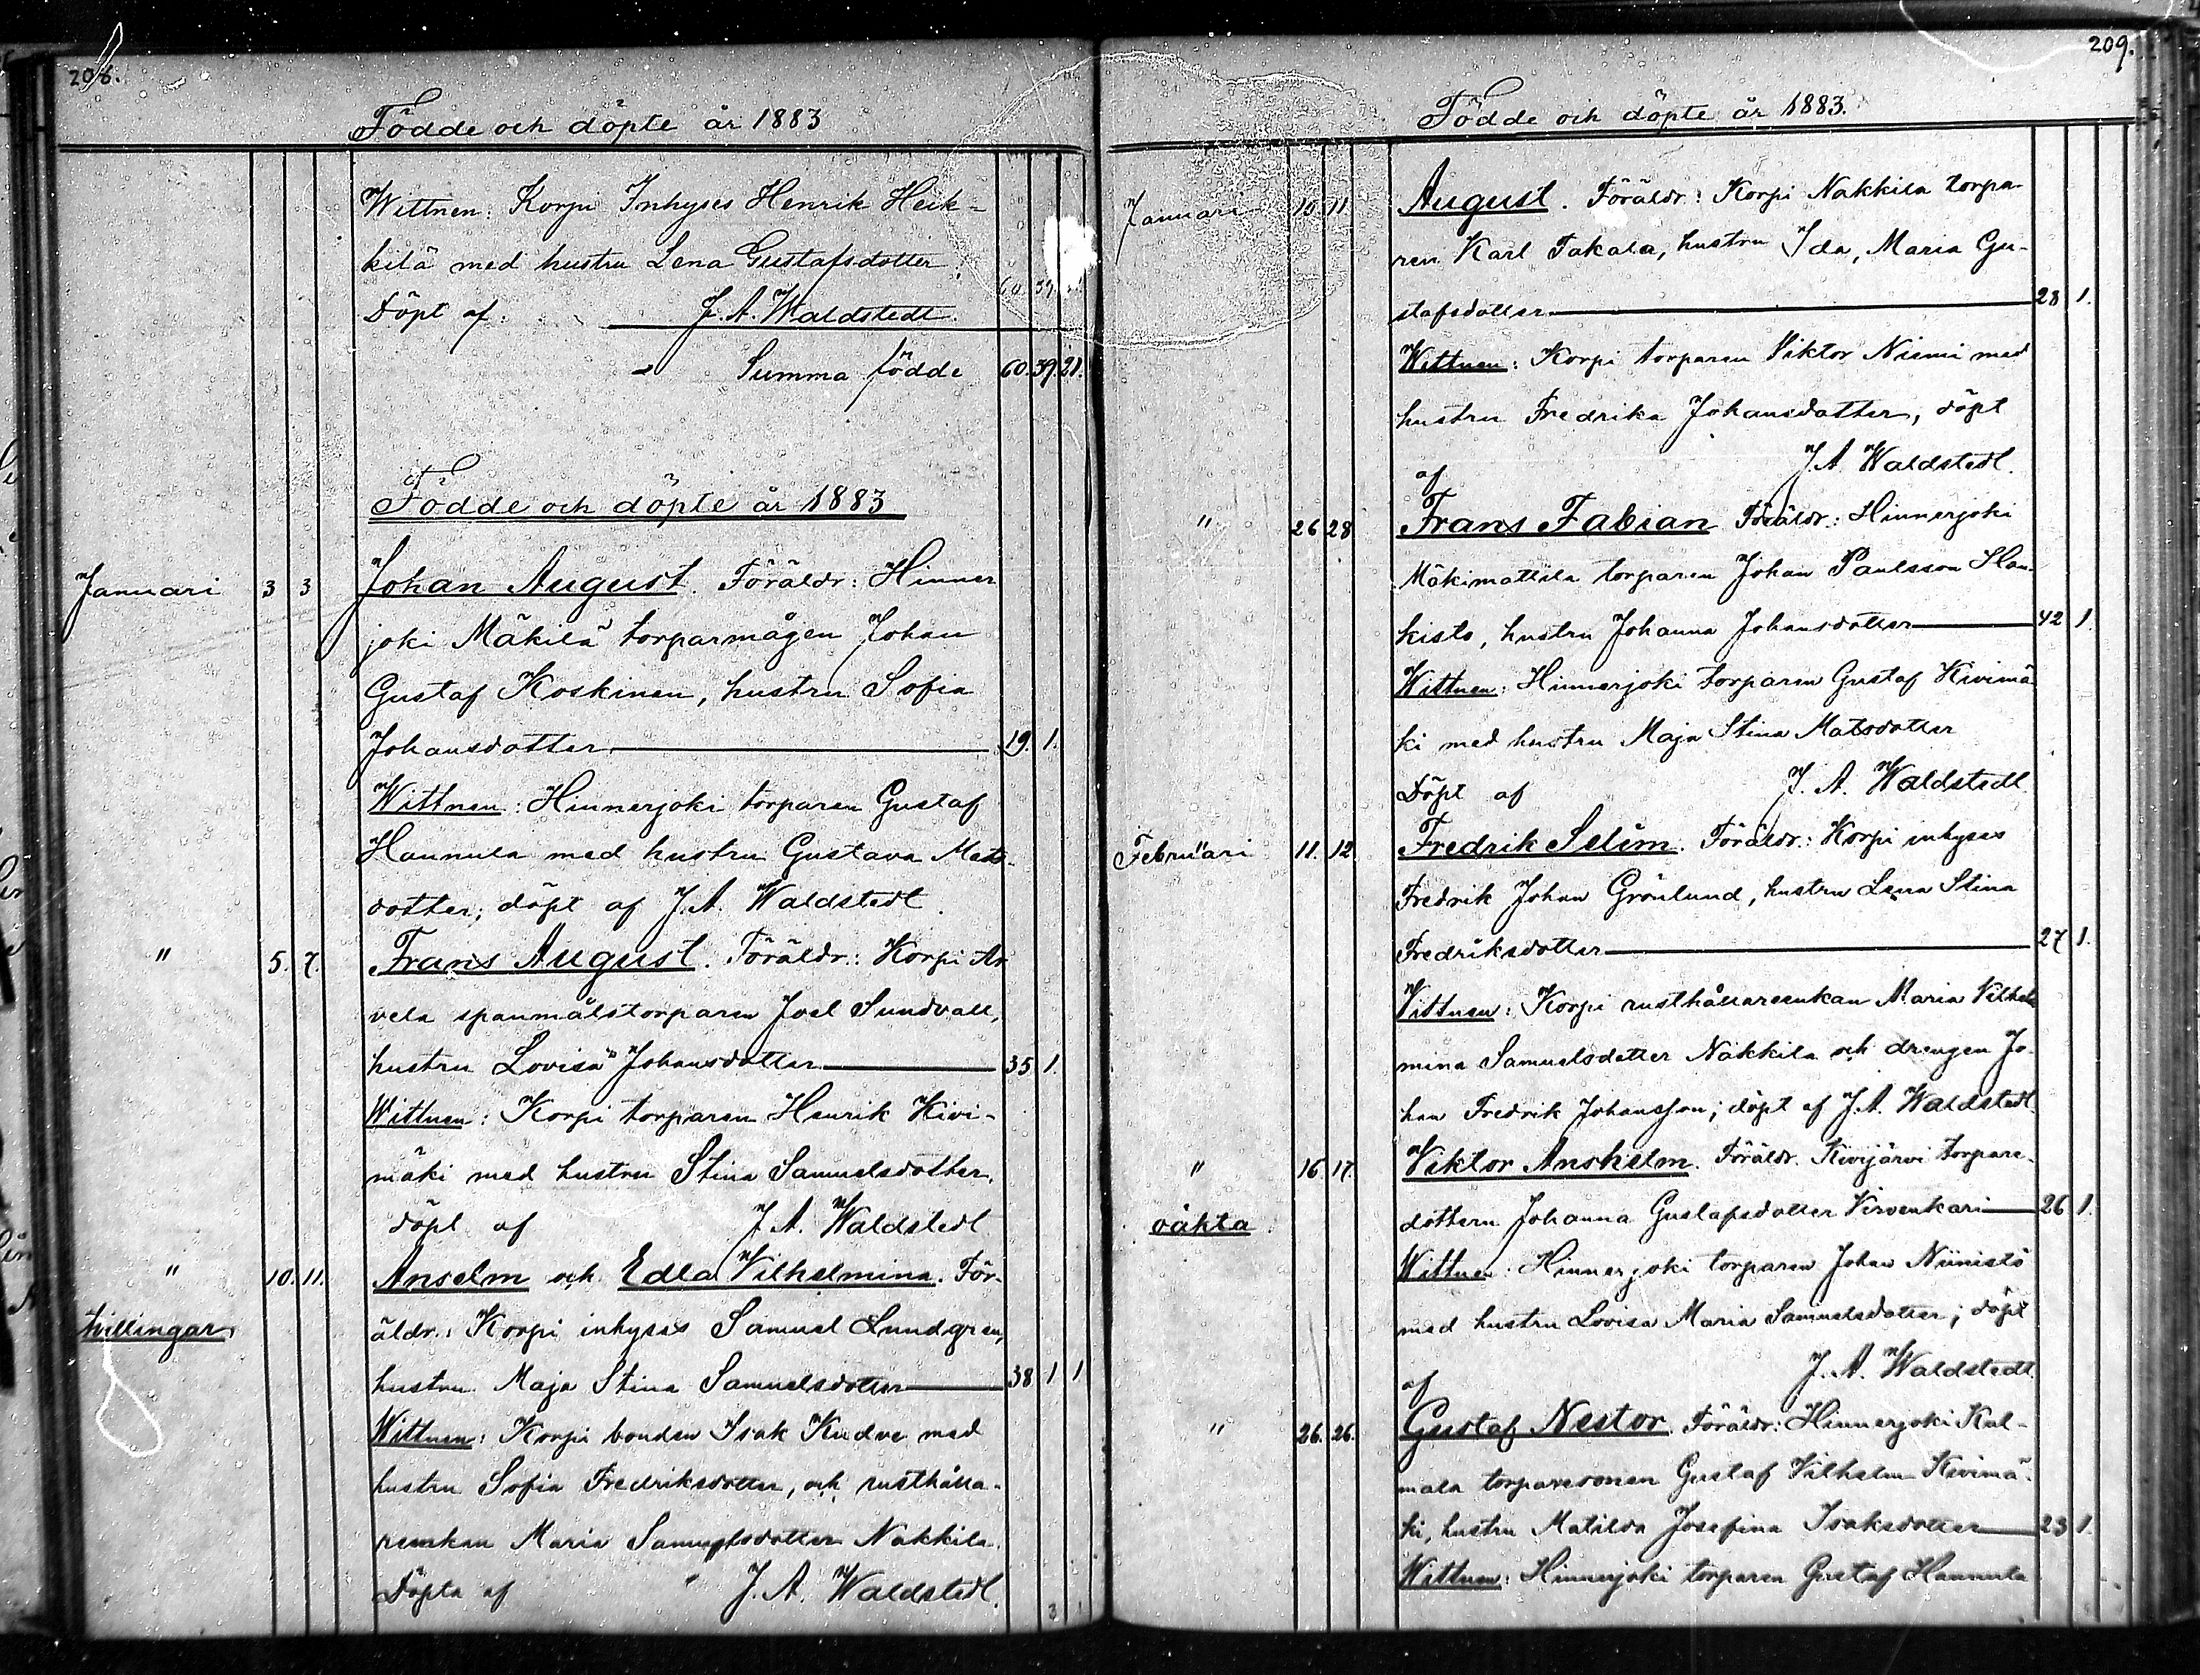 208.
Födde och döpte år 1883
Wittnen: Korpi Inhyses Henrik Heik-
kilä med hustru Lena Gustafsdotter
60 39
Döpt af J. A. Waldstedt.
Summa födde 60. 39. 21.
Födde och döpte år 1883
Januari 3 3 Johan August. Föräldr: Hinner
joki Mäkilä torparmågen Johan
Gustaf Koskinen, hustru Sofia
Johansdotter 19. 1.
Wittnen: Hinnerjoki torparen Gustaf
Hannula med hustru Gustava Mats-
dotter; döpt af J. A. Waldstedt.
" 5. 7. Frans August. Föräldr: Korpi Ar
vela spanmålstorparen Joel Sundvall,
hustru Lovisa Johansdotter 35 1.
Wittnen: Korpi torparen Henrik Kivi-
mäki med hustru Stina Samuelsdotter.
döpt af J. A. Waldstedt
" 10. 11. Anselm och Edla Vilhelmina. För-
tvillingar äldr.: Korpi inhyses Samuel Lundgren,
hustru Maja Stina Samuelsdotter 38 1 1
Wittnen: Korpi bonden Isak Kudve med
hustru Sofia Fredriksdotter, och rusthålla-
renkan Maria Samuelsdotter Nakkila.
Döpta af J. A. Waldstedt.
209.
Födde och döpte år 1883.
Januari 10 11 August. Föräldr: Korpi Nakkila torpa-
ren Karl Takala, hustru Ida, Maria Gu-
stafsdotter 28 1.
Wittnen: Korpi torparen Viktor Niemi med
hustru Fredrika Johansdotter, döpt
af J. A. Waldstedt.
" 26 28 Frans Fabian Föräldr: Hinnerjoki
Mäkimattila torparen Johan Paulsson Hau-
kisto, hustru Johanna Johansdotter 42 1.
Wittnen: Hinnerjoki torparen Gustaf Kivimä-
ki med hustru Maja Stina Matsdotter
Döpt af J. A. Waldstedt
Februari 11. 12 Fredrik Selim. Föräldr: Korpi inhyses
Fredrik Johan Grönlund, hustru Lena Stina
Fredriksdotter 27 1.
Vittnen: Korpi rusthållareenkan Maria Vilhel
mina Samuelsdotter Nakkila och drengen Jo-
han Fredrik Johansson; döpt af J. A. Waldstedt.
" 16. 17. Viktor Anshelm. Föräldr. Kivijärvi torpare-
oäkta dottern Johanna Gustafsdotter Virvenkari 26 1.
Wittnen: Hinnerjoki torparen Johan Niinistö
med hustru Lovisa Maria Samuelsdotter; döpt
af J. A. Waldstedt.
" 26. 26. Gustaf Nestor. Föräldr: Hinnerjoki Kul-
mala torparesonen Gustaf Vilhelm Kivimä-
ki, hustru Matilda Josefina Isaksdotter 23 1.
Wittnen: Hinnerjoki torparen Gustaf Hannula